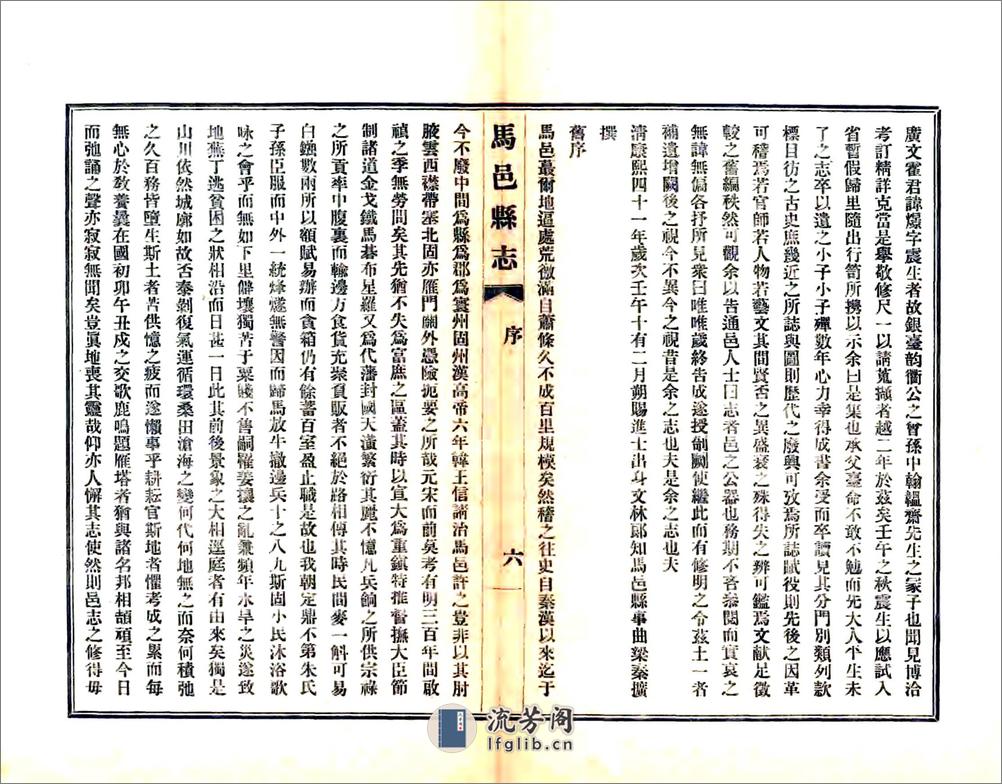 廣文霍君諱燝字震生者故銀臺韵衢公之曾孫中翰韞齋先生之冢子也聞見博洽
考訂精詳克當是舉敬修尺一以請蒐擷者越二年於茲矣壬午之秋震生以應試入
省暫假歸里隨出行笥所攜以示余曰是集也承父臺命不敢不勉而先大人平生未
了之志卒以遺之小子小子殫數年心力幸得成書余受而卒讀見其分門別類列款
標目彷之古史庶幾近之所誌與圖則歷代之廢興可攷焉所誌賦役則先後之因革
可稽焉若官師若人物若藝文其間賢否之異盛衰之殊得失之辨可鑑焉文獻足徵
較之舊編秩然可觀余以告通邑人士曰志者邑之公器也務期不吝叅閱而實哀之
無諱無偏各抒所見衆曰唯唯歲終告成遂授剞劂使繼此而有修明之令茲土一者
補遺增闕後之視今不異今之視昔是余之志也夫是余之志也夫
清康熙四十一年歲次壬午十有二月朔賜進士出身文林郎知馬邑縣事曲梁秦擴
撰
舊序
馬邑蕞爾地逼處荒徼滿自蕭條久不成百里規模矣然稽之往史自秦漢以來迄于
馬邑縣志
序
六
今不廢中間爲縣爲郡爲寰州固州漢高帝六年韓王信請治馬邑許之豈非以其肘
腋雲西襟帶塞北固亦雁門關外愚險扼要之所哉元宋而前吳考有明三百年間啟
禎之季無勞問矣其先猶不失爲富庶之區蓋其時以宣大爲重鎮特推督撫大臣節
制諸道金戈鐵馬碁布星羅又爲代藩封國天潢繁衍其麗不億凡兵餉之所供宗祿
之所貢率中腹裏而輸邊方食貨充聚負販者不絕於路相傳其時民間麥一斛可易
白鏹數兩所以額賦易辦而貪箱仍有餘蓄百室盈止職是故也我朝定鼎不第朱氏
子孫臣服而中外一統烽燧無警因而歸馬放牛撤邊兵十之八九斯固小民沐浴歌
咏之會乎而無如下里僻壤獨苦于粟賤不售嗣罹姜瓖之亂兼頻年水旱之災遂致
地蕪丁逃貧困之狀相沿而日甚一日此其前後景象之大相逕庭者有由來矣獨是
山川依然城廓如故否泰剝復氣運循環桑田滄海之變何代何地無之而奈何積弛
之久百務皆墮生斯土者苦供憶之疲而遂懶事乎耕耘官斯地者懼考成之累而每
無心於敎養曩在國初卯午丑戍之交歌鹿鳴題雁塔者猶與諸名邦相頡頏至今日
而弦誦之聲亦寂寂無聞矣豈眞地喪其靈哉仰亦人懈其志使然則邑志之修得毋
流芳阁
lfglib.cn